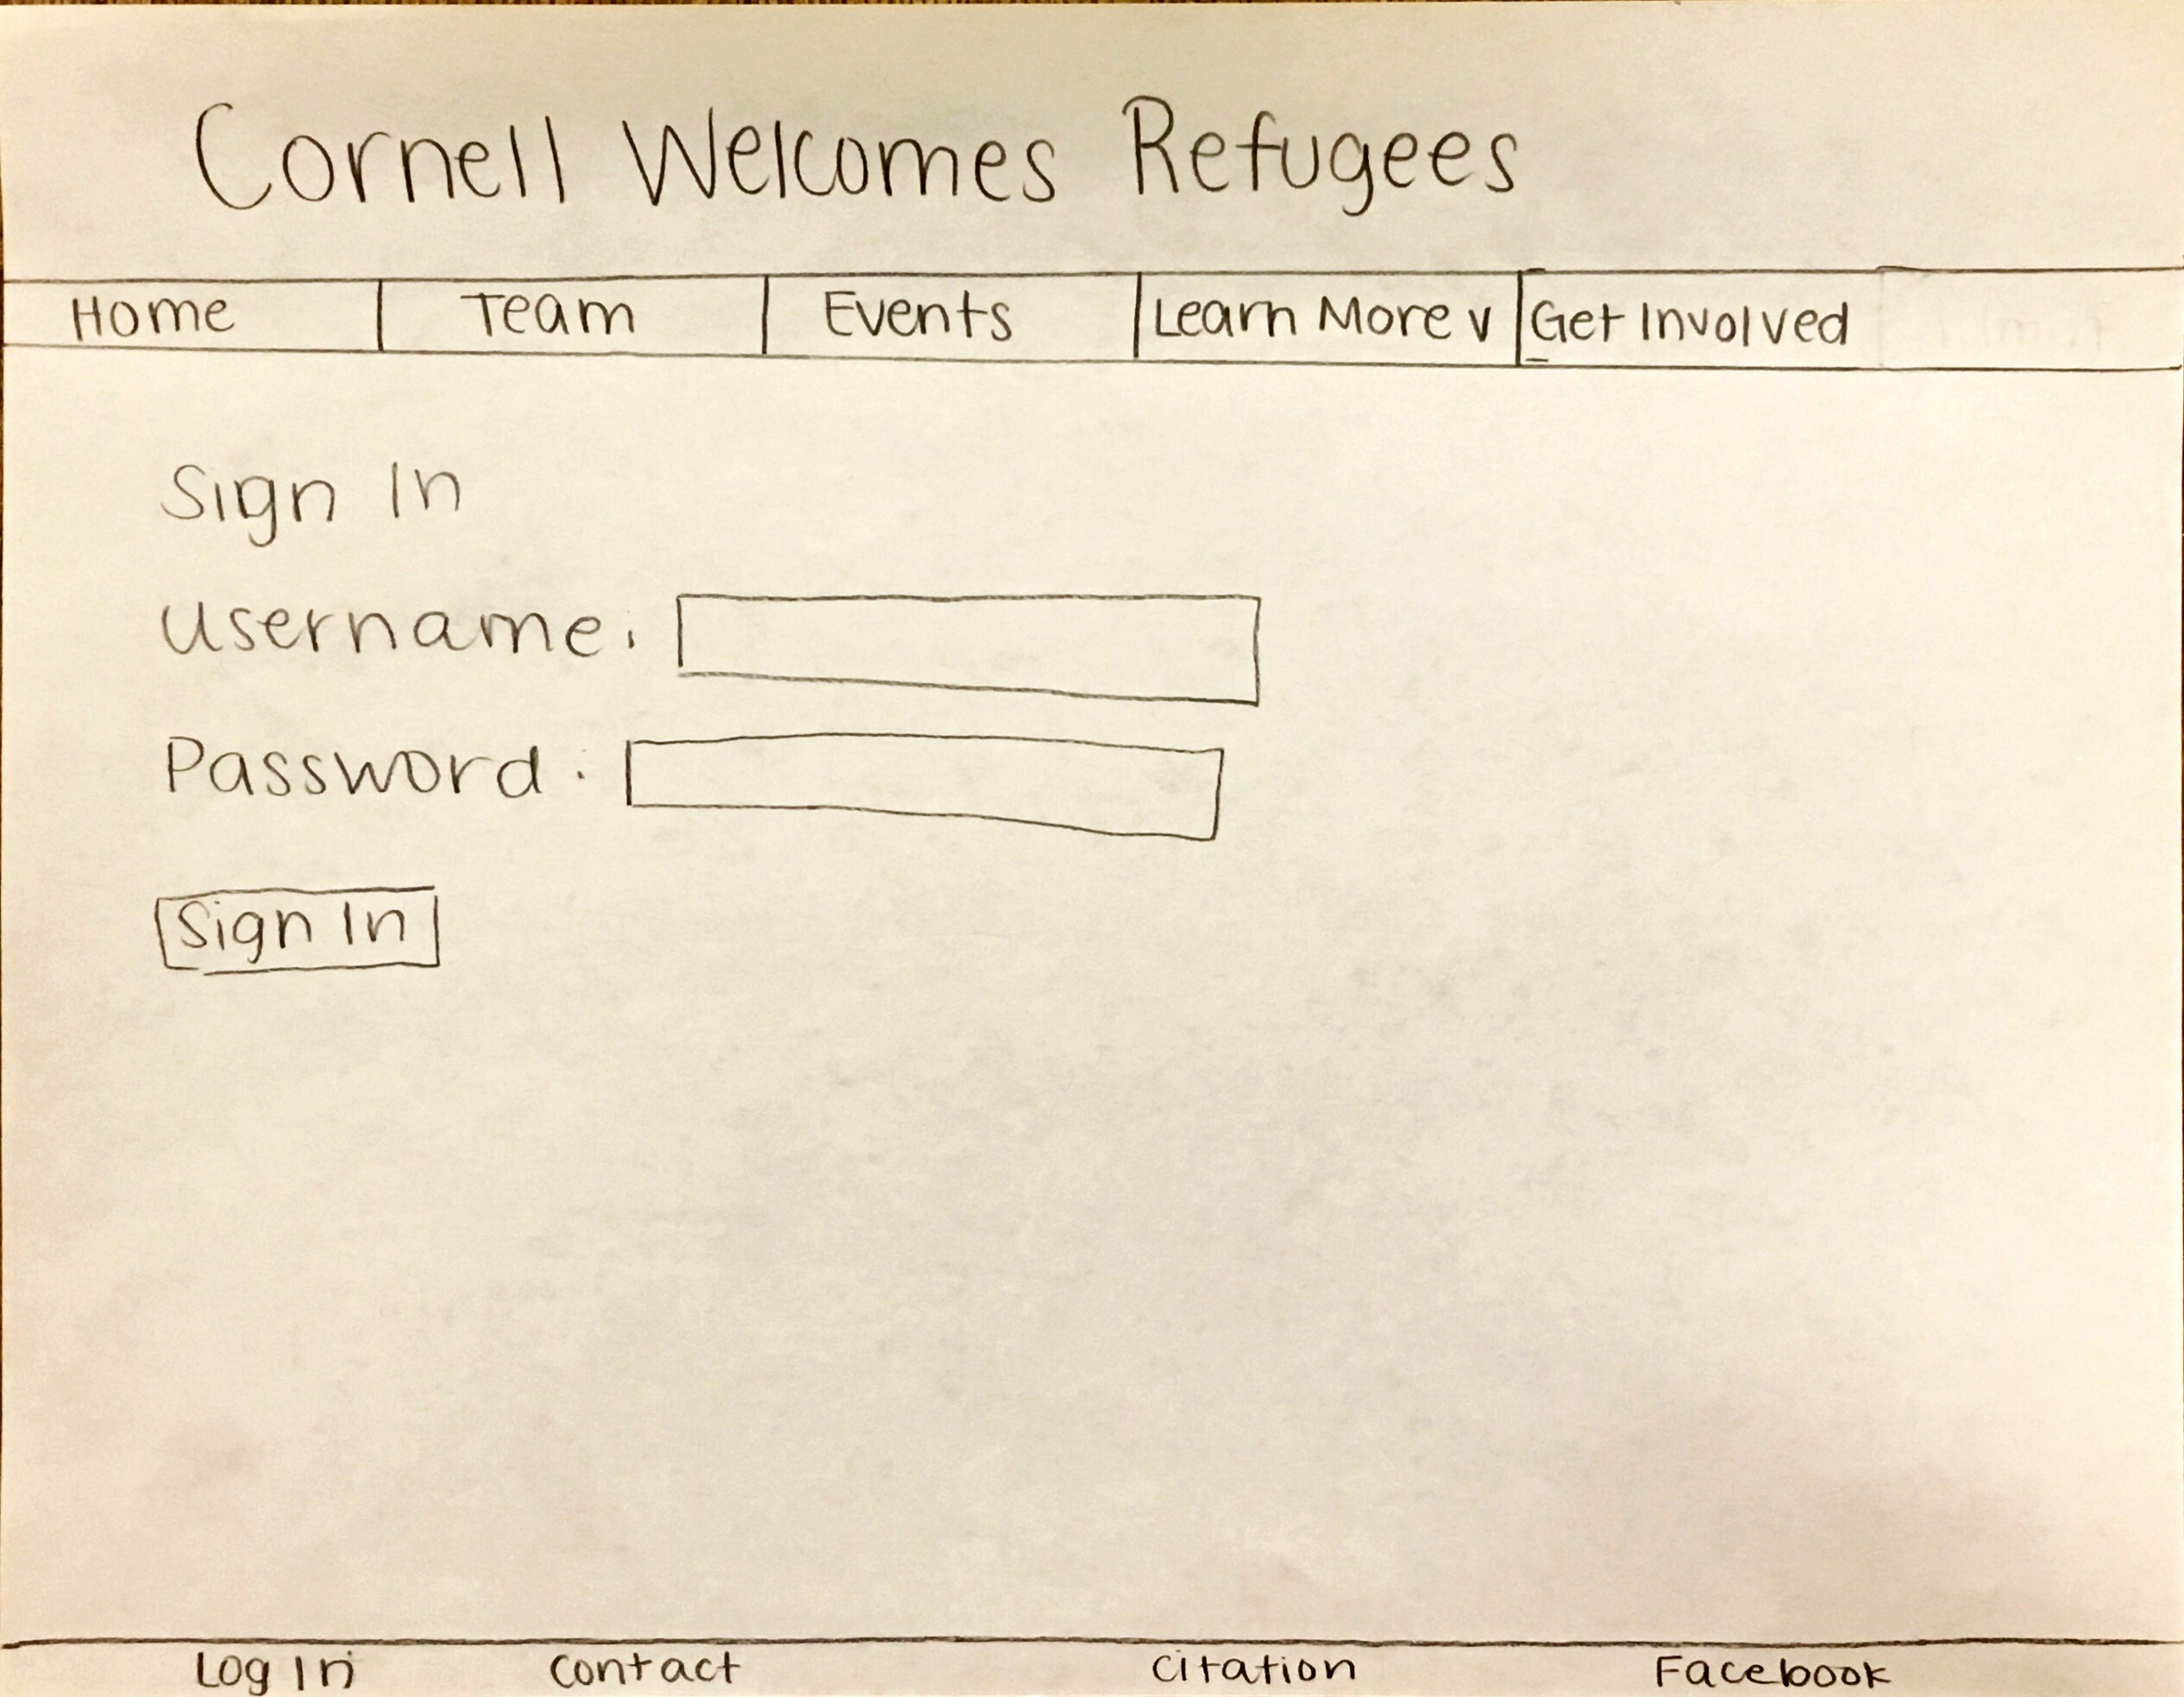 Cornell Welcomes Refugees
Home Team Events Learn More v Get Involved
Sign In
Username:
Password:
Sign In
Log In Contact Citation Facebook